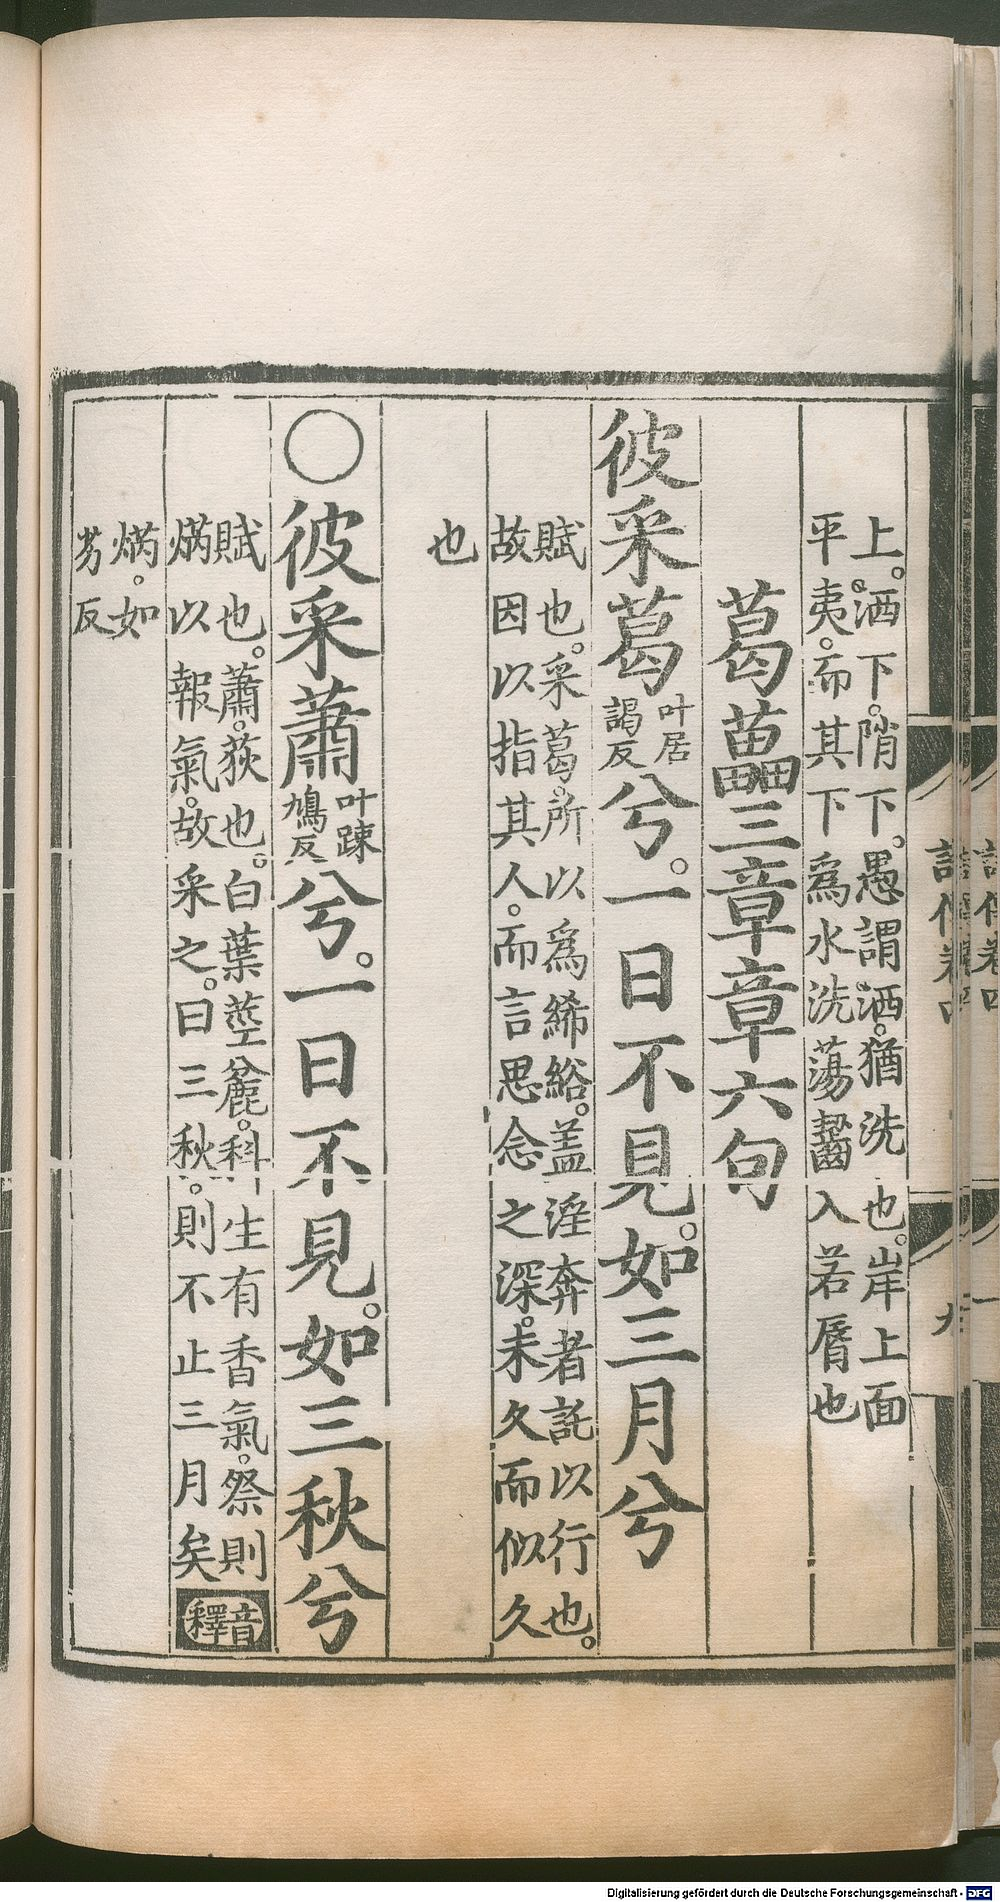 上。洒下。隋下。愚謂洒。猶洗也。岸上面
平夷。而其下爲水洗蕩齧入若脣也
葛藟三章章六句
彼采葛叶居謁反兮。一日不見。如三月兮
賦也。采葛。所以爲絺綌。盖淫奔者託以行也。
故因以指其人。而言思念之深。未久而似久
也
○彼采蕭叶疎鳩反兮。一日不見。如三秋兮
賦也。蕭。荻也。白葉莖麄。科生有香氣。祭則
焫以報氣。故采之。曰三秋。則不止三月矣音釋
焫。如
劣反
詩傳卷四
九
Digitalisierung gefördert durch die Deutsche Forschungsgemeinschaft - DFG